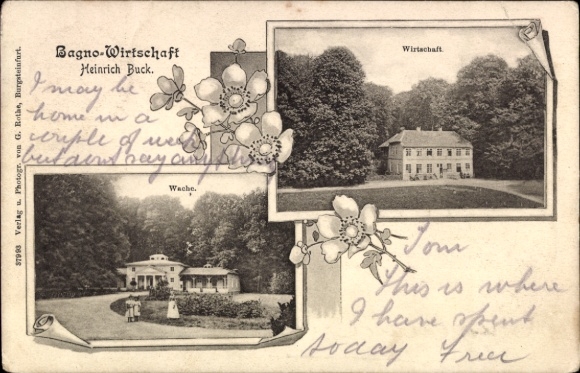 Bagno-Wirtschaft
Heinrich Buck.
I may be
home in a
couple of weeks
but dont say anything
Wirtschaft.
Wache.
Tom
This is where
I have spent
today
37993 Verlag u. Photogr. von G. Rothe, Burgsteinfurt.